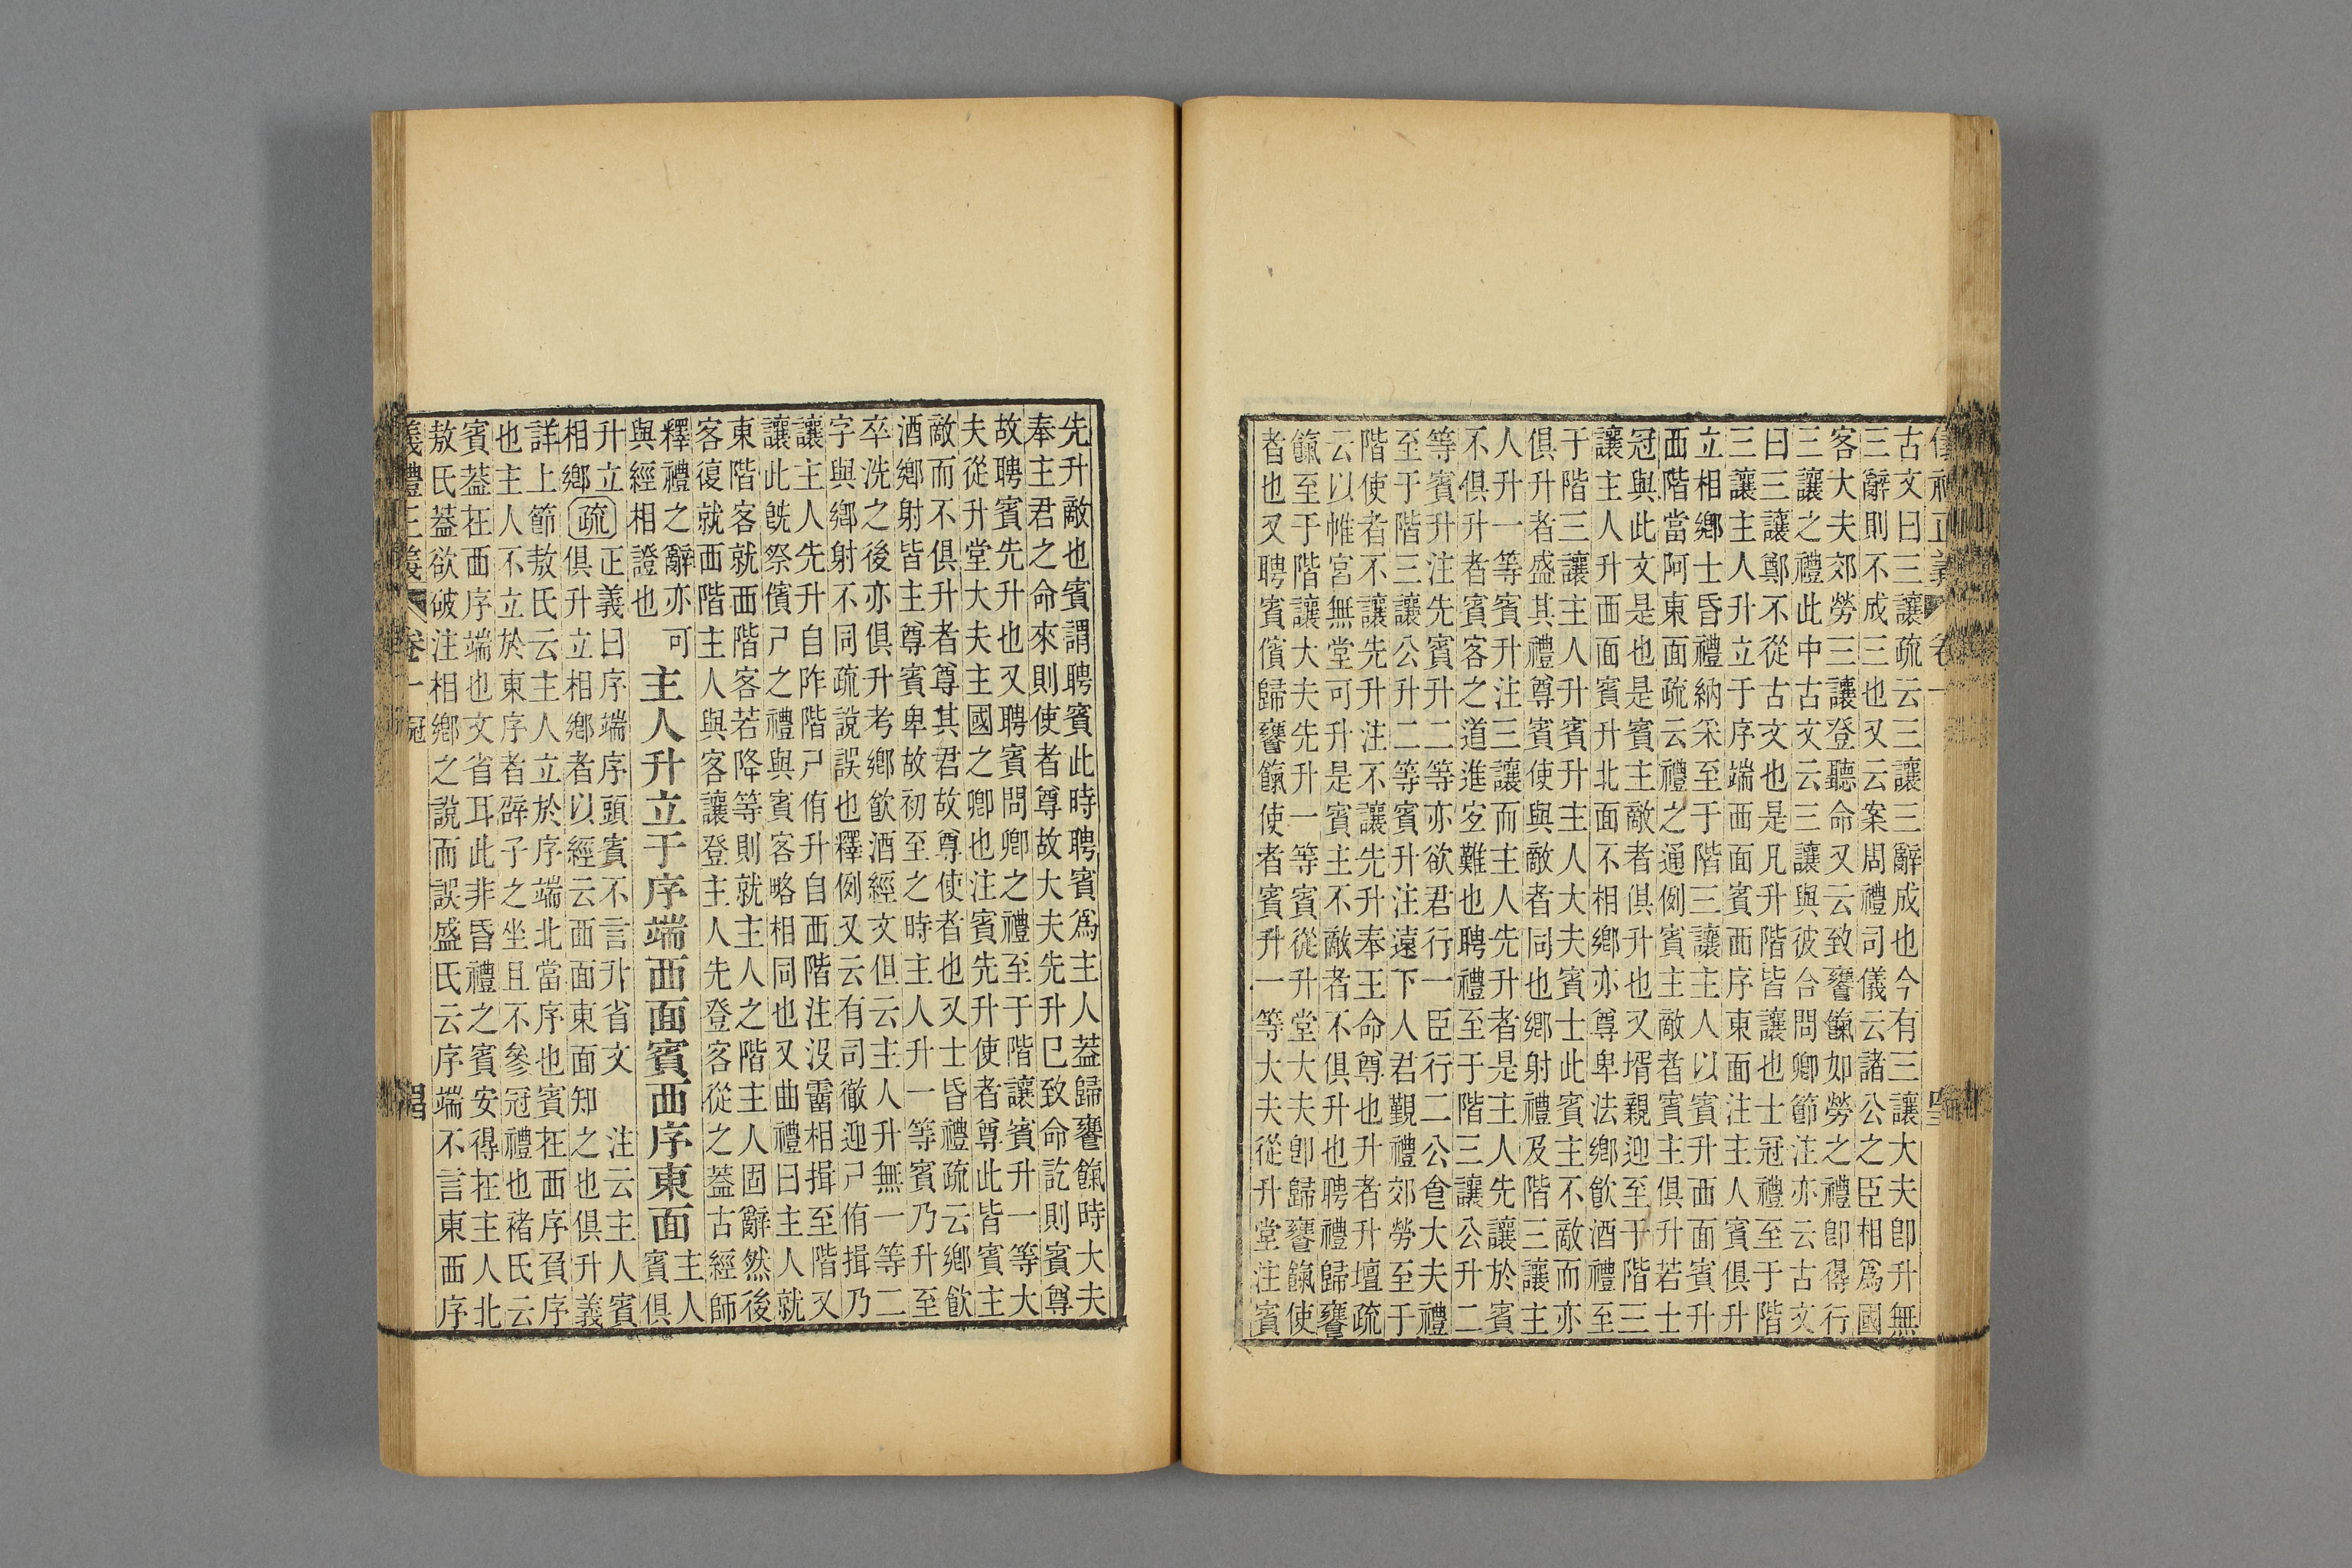 古文曰三讓疏云三讓三辭成也今有三讓大夫卽升無
三辭則不成三也又云案周禮司儀云諸公之臣相爲國
客大夫郊勞三讓登聽命又云致饔餼如勞之禮卽得行
三讓之禮此中古文云三讓與彼合問卿節注亦云古文
曰三讓鄭不從古文也是凡升階皆讓也士冠禮至于階
三讓主人升立于序端西面賓西序東面注主人賓俱升
立相鄉士昏禮納采至于階三讓主人以賓升西面賓升
西階當阿東面疏云禮之通例賓主敵者賓主俱升若士
冠與此文是也是賓主敵者俱升也又壻親迎至于階三
讓主人升西面賓升北面不相鄉亦尊卑法鄉飮酒禮至
于階三讓主人升賓升主人大夫賓士此賓主不敵而亦
俱升者盛其禮尊賓使與敵者同也鄉射禮及階三讓主
人升一等賓升注三讓而主人先升者是主人先讓於賓
不俱升者賓客之道進宜難也聘禮至于階三讓公升二
等賓升注先賓升二等亦欲君行一臣行二公食大夫禮
至于階三讓公升二等賓升注遠下人君覲禮郊勞至于
階使者不讓先升注不讓先升奉王命尊也升者升壇疏
云以帷宮無堂可升是賓主不敵者不俱升也聘禮歸饔
餼至于階讓大夫先升一等賓從升堂大夫卽歸饔餼使
者也又聘賓儐歸饔餼使者賓升一等大夫從升堂注賓
先升敵也賓謂聘賓此時聘賓爲主人葢歸饔餼時大夫
奉主君之命來則使者尊故大夫先升巳致命訖則賓尊
故聘賓先升也又聘賓問卿之禮至于階讓賓升一等大
夫從升堂大夫主國之卿也注賓先升使者尊此皆賓主
敵而不俱升者尊其君故尊使者也又士昏禮疏云鄉飮
酒鄉射皆主尊賓卑故初至之時主人升一等賓乃升至
卒洗之後亦俱升考鄉飮酒經文但云主人升無一等二
字與鄉射不同疏說誤也釋例又云有司徹迎尸侑揖乃
讓主人先升自阼階尸侑升自西階注沒霤相揖至階又
讓此旣祭儐尸之禮與賓客略相同也又曲禮曰主人就
東階客就西階客若降等則就主人之階主人固辭然後
客復就西階主人與客讓登主人先登客從之葢古經師
釋禮之辭亦可
與經相證也
主人升立于序端西面賓西序東面
主人
賓俱
升立
相鄉
疏
正義曰序端序頭賓不言升省文 注云主人賓
俱升立相鄉者以經云西面東面知之也俱升義
詳上節敖氏云主人立於序端北當序也賓在西序負序
也主人不立於東序者辟子之坐且不參冠禮也褚氏云
賓葢在西序端也文省耳此非昏禮之賓安得在主人北
敖氏葢欲破注相鄉之說而誤盛氏云序端不言東西序
卷一 冠